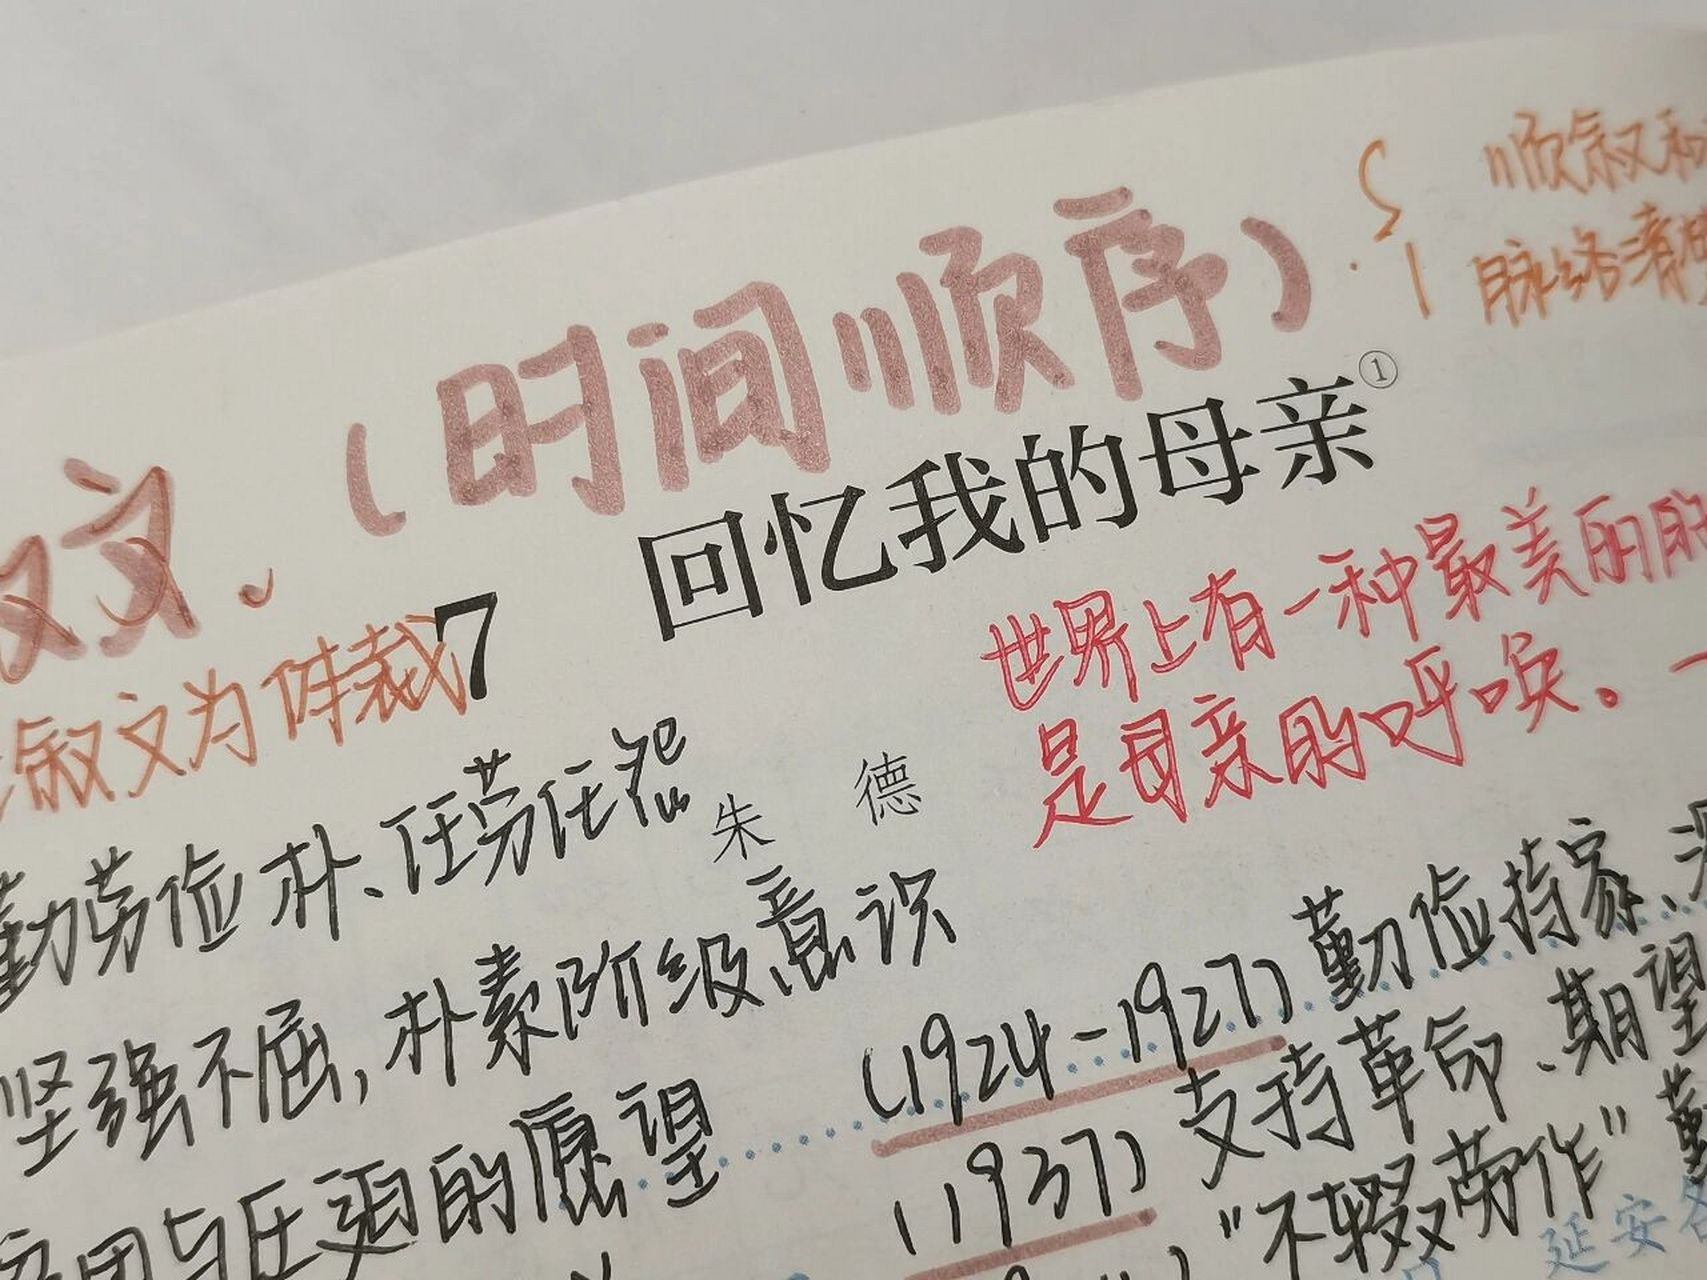 顺叙
脉络清
（时间顺序）
文.
回忆我的母亲①
7
叙文为体裁
世界上有一种最美的
是母亲的呼唤。一
朱 德
勤劳俭朴、任劳任怨
坚强不屈,朴素阶级意识
与压迫的愿望
（1924-1927）勤俭持家、
（1937）支持革命、期望
"不辍劳作" 勤
延安各